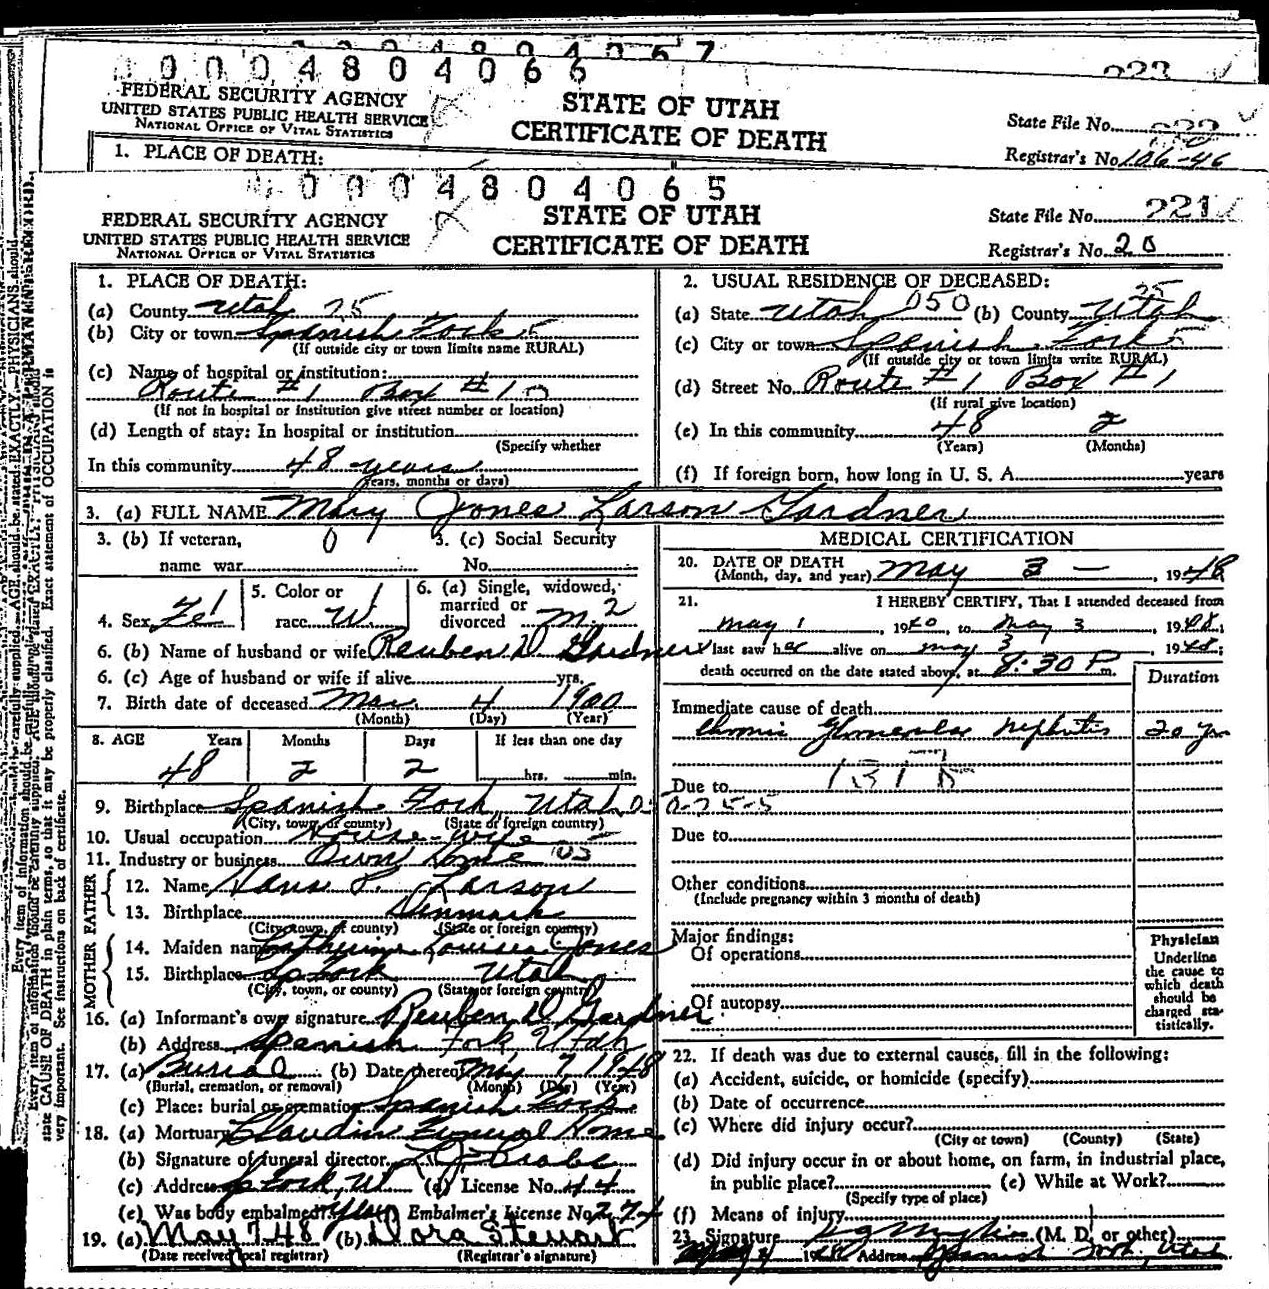 0 0 0 4 8 0 4 0 6 7
223
0 0 0 4 8 0 4 0 6 6
FEDERAL SECURITY AGENCY
UNITED STATES PUBLIC HEALTH SERVICE
NATIONAL OFFICE OF VITAL STATISTICS
STATE OF UTAH
CERTIFICATE OF DEATH
State File No. 222
Registrar's No. 106-46
1. PLACE OF DEATH:
0 0 0 4 8 0 4 0 6 5
FEDERAL SECURITY AGENCY
UNITED STATES PUBLIC HEALTH SERVICE
NATIONAL OFFICE OF VITAL STATISTICS
STATE OF UTAH
CERTIFICATE OF DEATH
State File No. 221
Registrar's No. 20
1. PLACE OF DEATH:
(a) County Utah 25
(b) City or town Spanish Fork 5
(If outside city or town limits name RURAL)
(c) Name of hospital or institution:
Route #1 Box #1
(If not in hospital or institution give street number or location)
(d) Length of stay: In hospital or institution
(Specify whether
In this community 48 years
years, months or days)
2. USUAL RESIDENCE OF DECEASED:
(a) State Utah 050 (b) County Utah 25
(c) City or town Spanish Fork 5
(If outside city or town limits write RURAL)
(d) Street No. Route #1 Box #1
(If rural give location)
(e) In this community 48 2
(Years) (Months)
(f) If foreign born, how long in U. S. A. years
3. (a) FULL NAME Mary Jones Larson Gardner
3. (b) If veteran, 0
name war
3. (c) Social Security
No.
4. Sex Fe 1
5. Color or
race W. 1
6. (a) Single, widowed,
married or
divorced M. 2
6. (b) Name of husband or wife Reuben D Gardner
6. (c) Age of husband or wife if alive yrs.
7. Birth date of deceased Mar. 4 1900
(Month) (Day) (Year)
8. AGE Years Months Days If less than one day
48 2 2 hrs. min.
9. Birthplace Spanish Fork, Utah
(City, town, or county) (State or foreign country)
10. Usual occupation House-wife
11. Industry or business Own Home
FATHER
12. Name Hans P. Larson
13. Birthplace Denmark
(City, town, or county) (State or foreign country)
MOTHER
14. Maiden name Catherine Louisa Jones
15. Birthplace Sp Fork Utah
(City, town, or county) (State or foreign country)
16. (a) Informant's own signature Reuben D Gardner
(b) Address Spanish Fork, Utah
17. (a) Burial (b) Date thereof May 7 1948
(Burial, cremation, or removal) (Month) (Day) (Year)
(c) Place: burial or cremation Spanish Fork
18. (a) Mortuary Claudin Funeral Home
(b) Signature of funeral director
(c) Address Sp Fork, Ut (d) License No. 44
(e) Was body embalmed? Yes Embalmer's License No. 274
19. (a) May 7 48 (b) Dora Stewart
(Date received local registrar) (Registrar's signature)
MEDICAL CERTIFICATION
20. DATE OF DEATH
(Month, day, and year) May 3 — , 1948
21. I HEREBY CERTIFY, That I attended deceased from
May 1 , 1940, to May 3 , 1948;
I last saw her alive on May 3 , 1948;
death occurred on the date stated above, at 8:30 P m.
Duration
Immediate cause of death
Chronic Glomerular Nephritis 20 yrs
Due to
Due to
Other conditions
(Include pregnancy within 3 months of death)
Major findings:
Of operations
Of autopsy
Physician
Underline
the cause to
which death
should be
charged sta-
tistically.
22. If death was due to external causes, fill in the following:
(a) Accident, suicide, or homicide (specify)
(b) Date of occurrence
(c) Where did injury occur?
(City or town) (County) (State)
(d) Did injury occur in or about home, on farm, in industrial place,
in public place? (e) While at Work?
(Specify type of place)
(f) Means of injury
23. Signature (M. D. or other)
1948 Address Spanish Fork, Utah